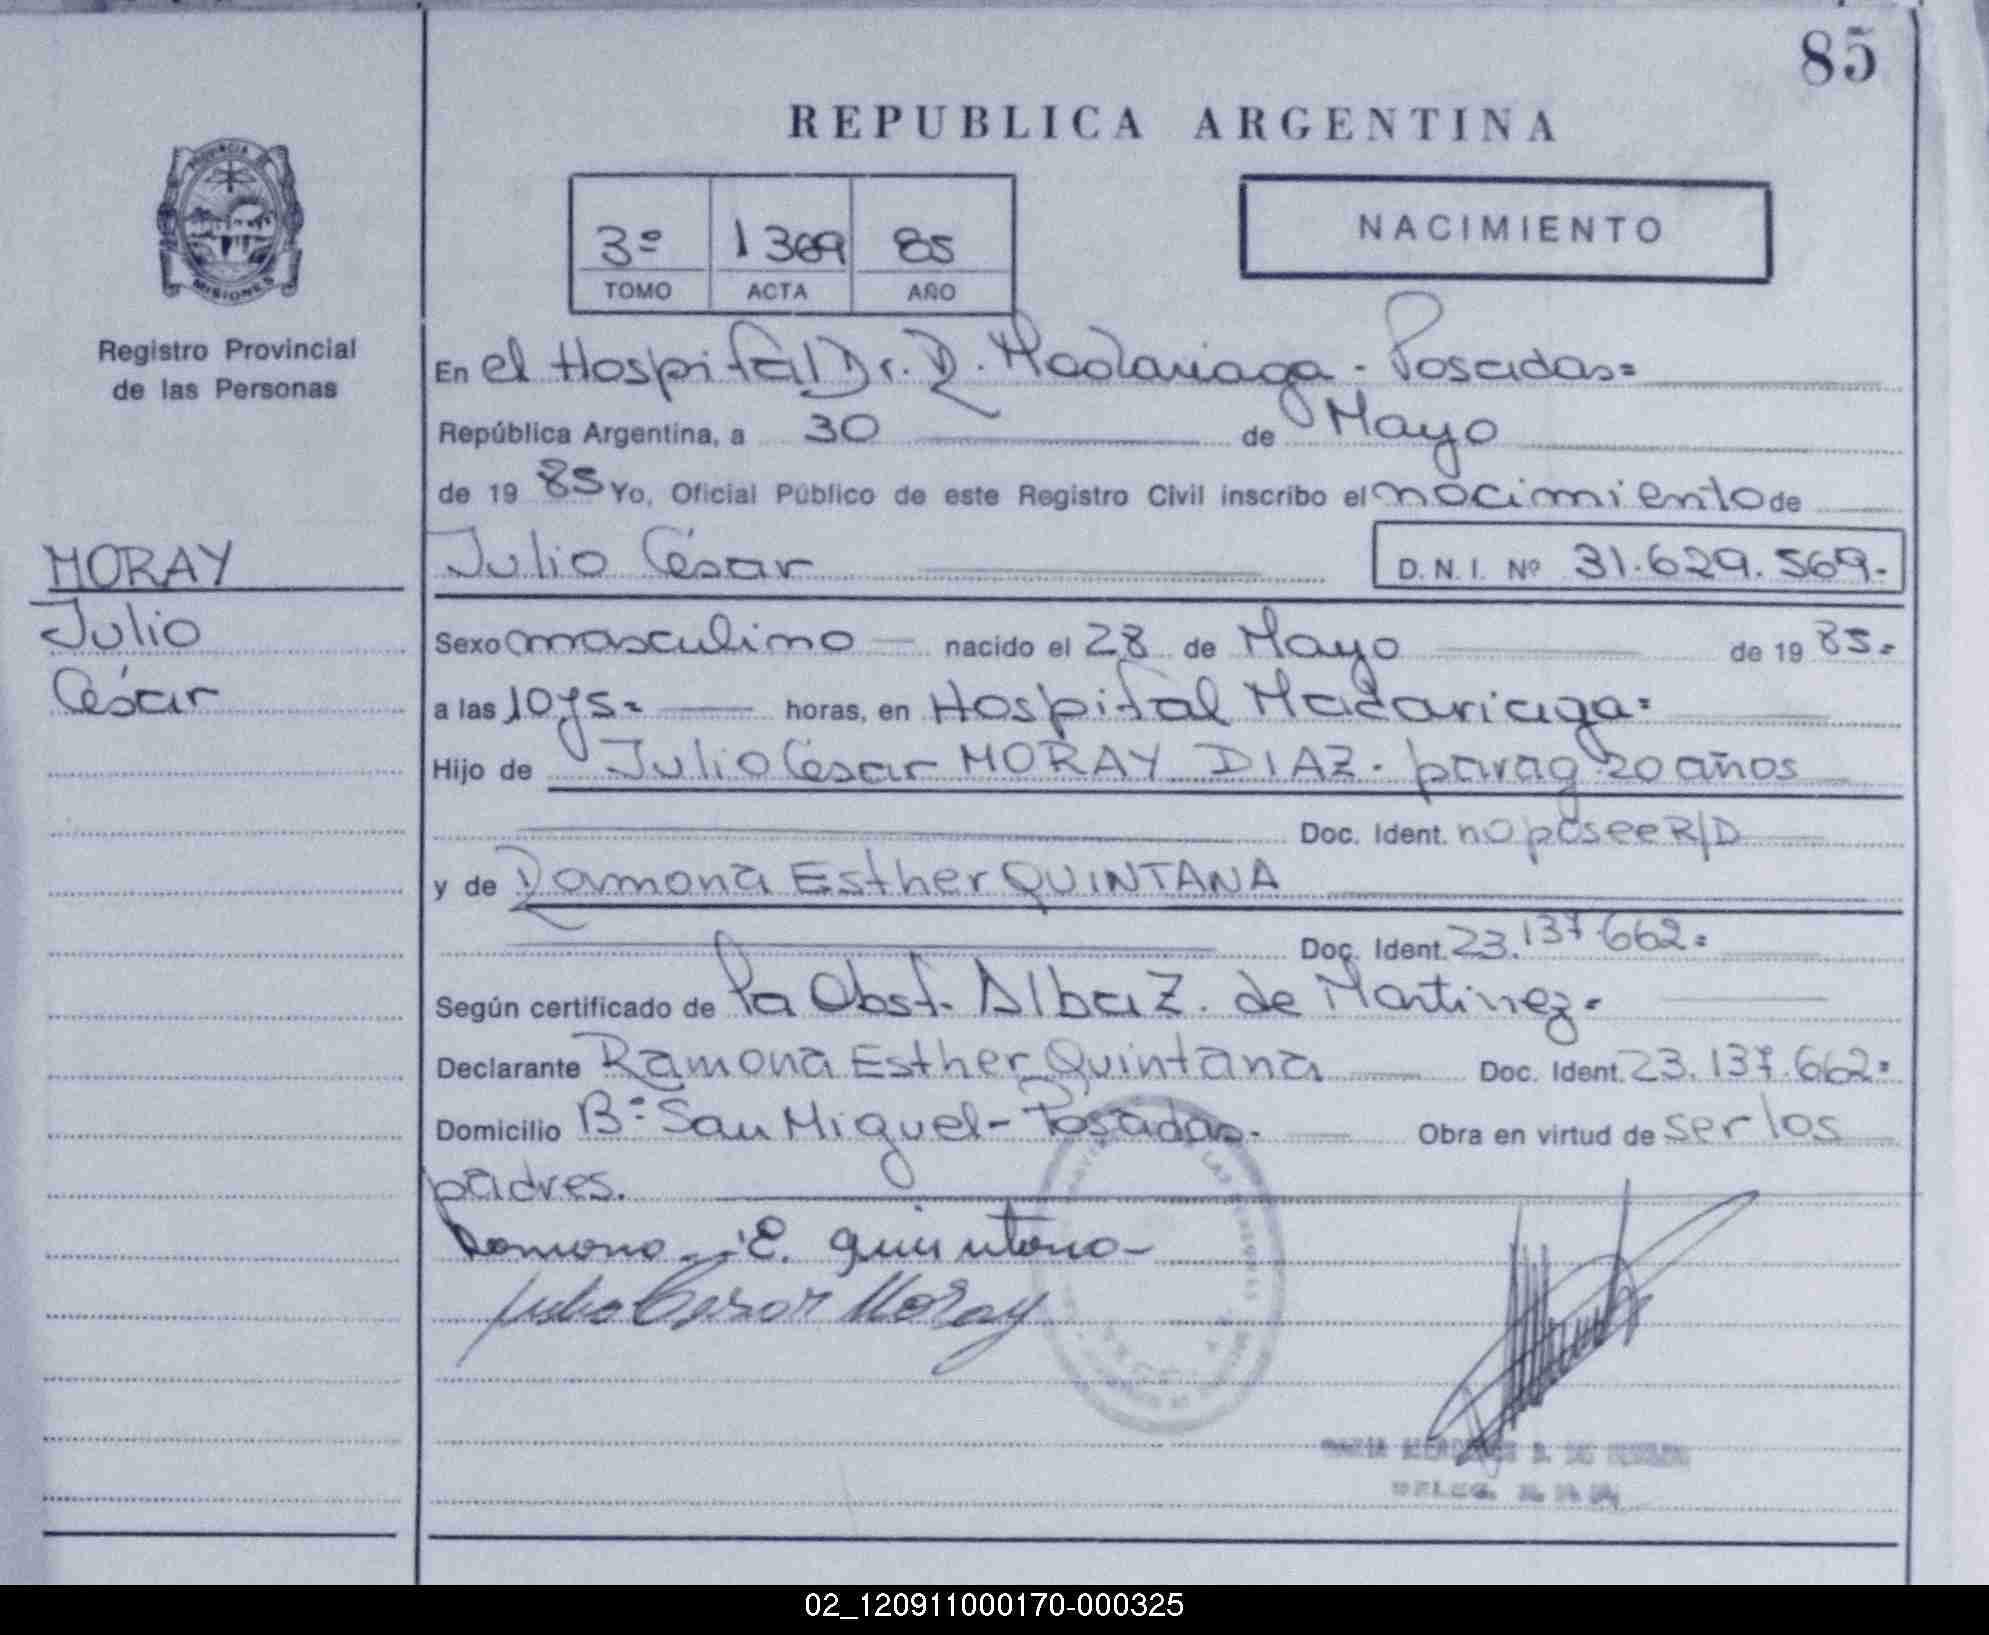 85
REPUBLICA ARGENTINA
PROVINCIA DE
MISIONES
Registro Provincial
de las Personas
3º 1369 85
TOMO ACTA AÑO
NACIMIENTO
En el Hospital Dr. R. Madariaga - Posadas=
República Argentina, a 30 de Mayo
de 1985 Yo, Oficial Público de este Registro Civil inscribo el nacimiento de
MORAY
Julio
César
Julio César D.N.I. Nº 31.629.569.-
Sexo masculino nacido el 28 de Mayo de 1985.=
a las 10 y 5= horas, en Hospital Madariaga=
Hijo de Julio César MORAY DIAZ. parag 20 años
Doc. Ident. no posee R/D
y de Ramona Esther QUINTANA
Doc. Ident. 23.137.662=
Según certificado de la Obst. Alba Z. de Martinez=
Declarante Ramona Esther Quintana Doc. Ident. 23.137.662=
Domicilio Bº San Miguel - Posadas.- Obra en virtud de ser los
padres.
Ramona E. Quintana
Julio Cesar Moray
02_120911000170-000325